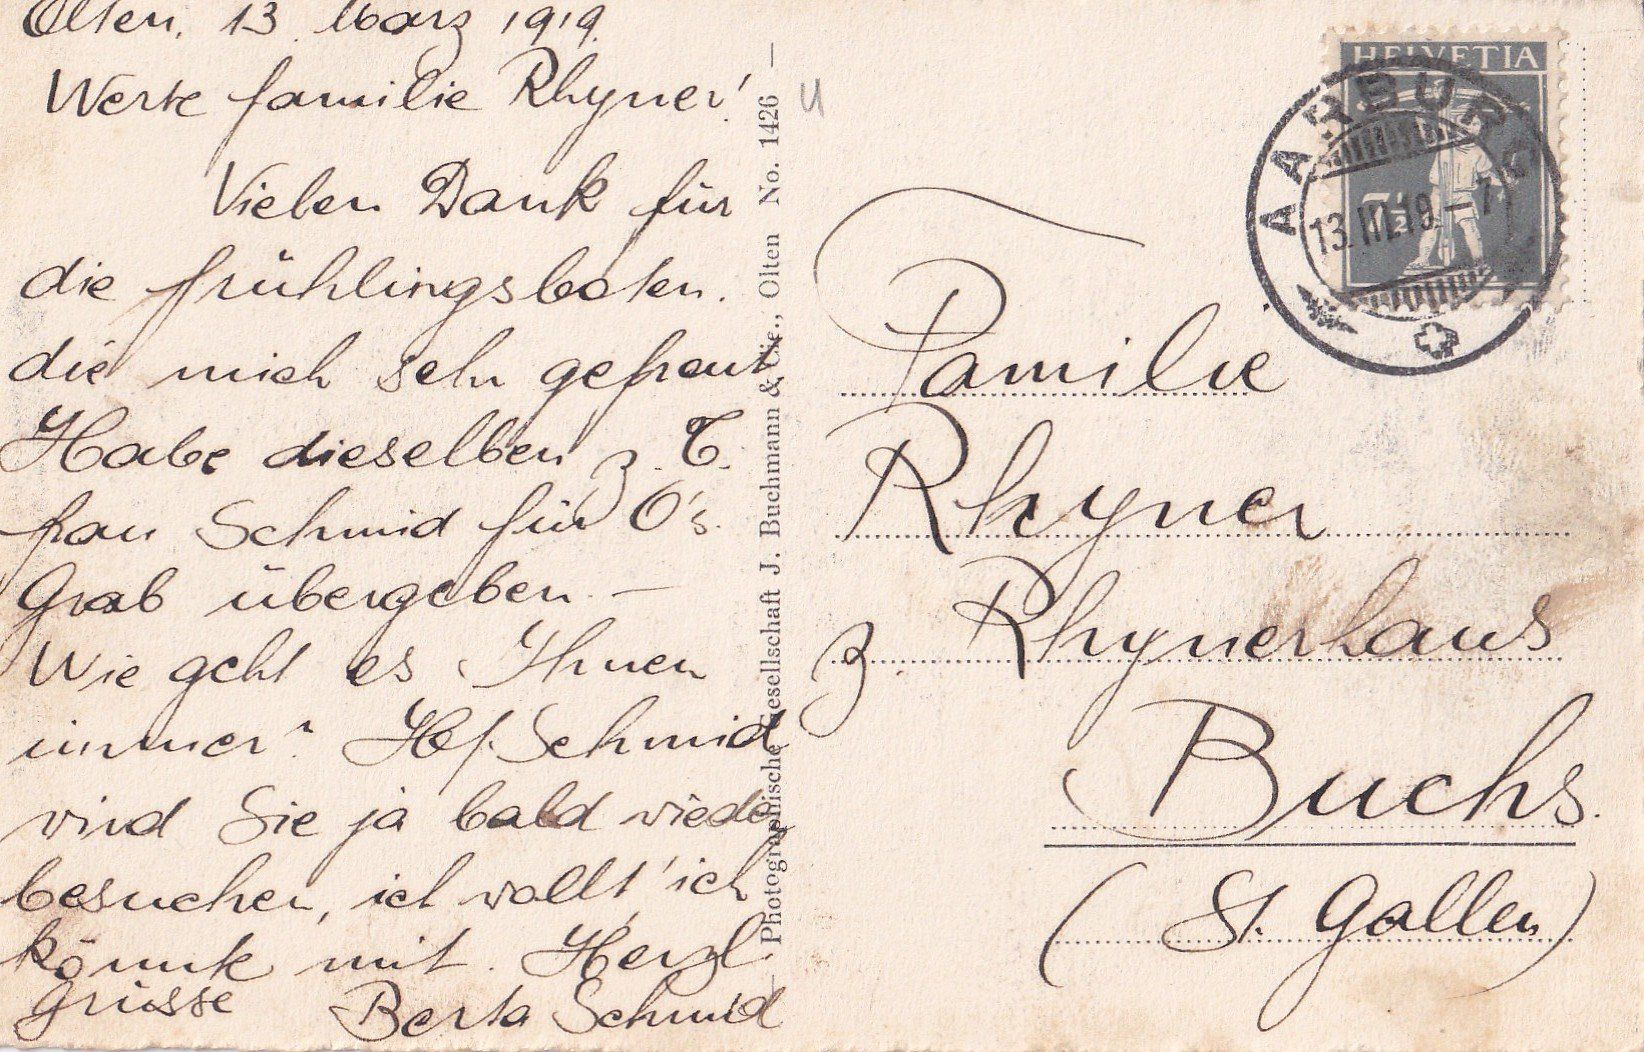 Olten, 13. März 1919.
Werte Familie Rhyner!
Vielen Dank für
die Frühlingsboten.
die mich sehr gefreut
Habe dieselben z. T.
Frau Schmid für O's.
Grab übergeben. —
Wie geht es Ihnen
immer? Schmid
wird Sie ja bald wieder
besuchen, ich wollt' ich
könnte mit. Herzl.
Grüsse Berta Schmid
— Photographische Gesellschaft J. Buchmann & Cie., Olten No. 1426 —
HELVETIA
7½
AARBURG
13.III.19.–7
Familie
Rhyner
z. Rhynerhaus
Buchs.
(St. Gallen)